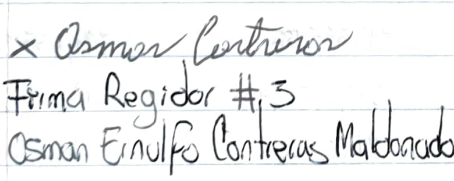 x Osmar Contreras
Firma Regidor #3
Osman Einulfo Contreras Maldonado